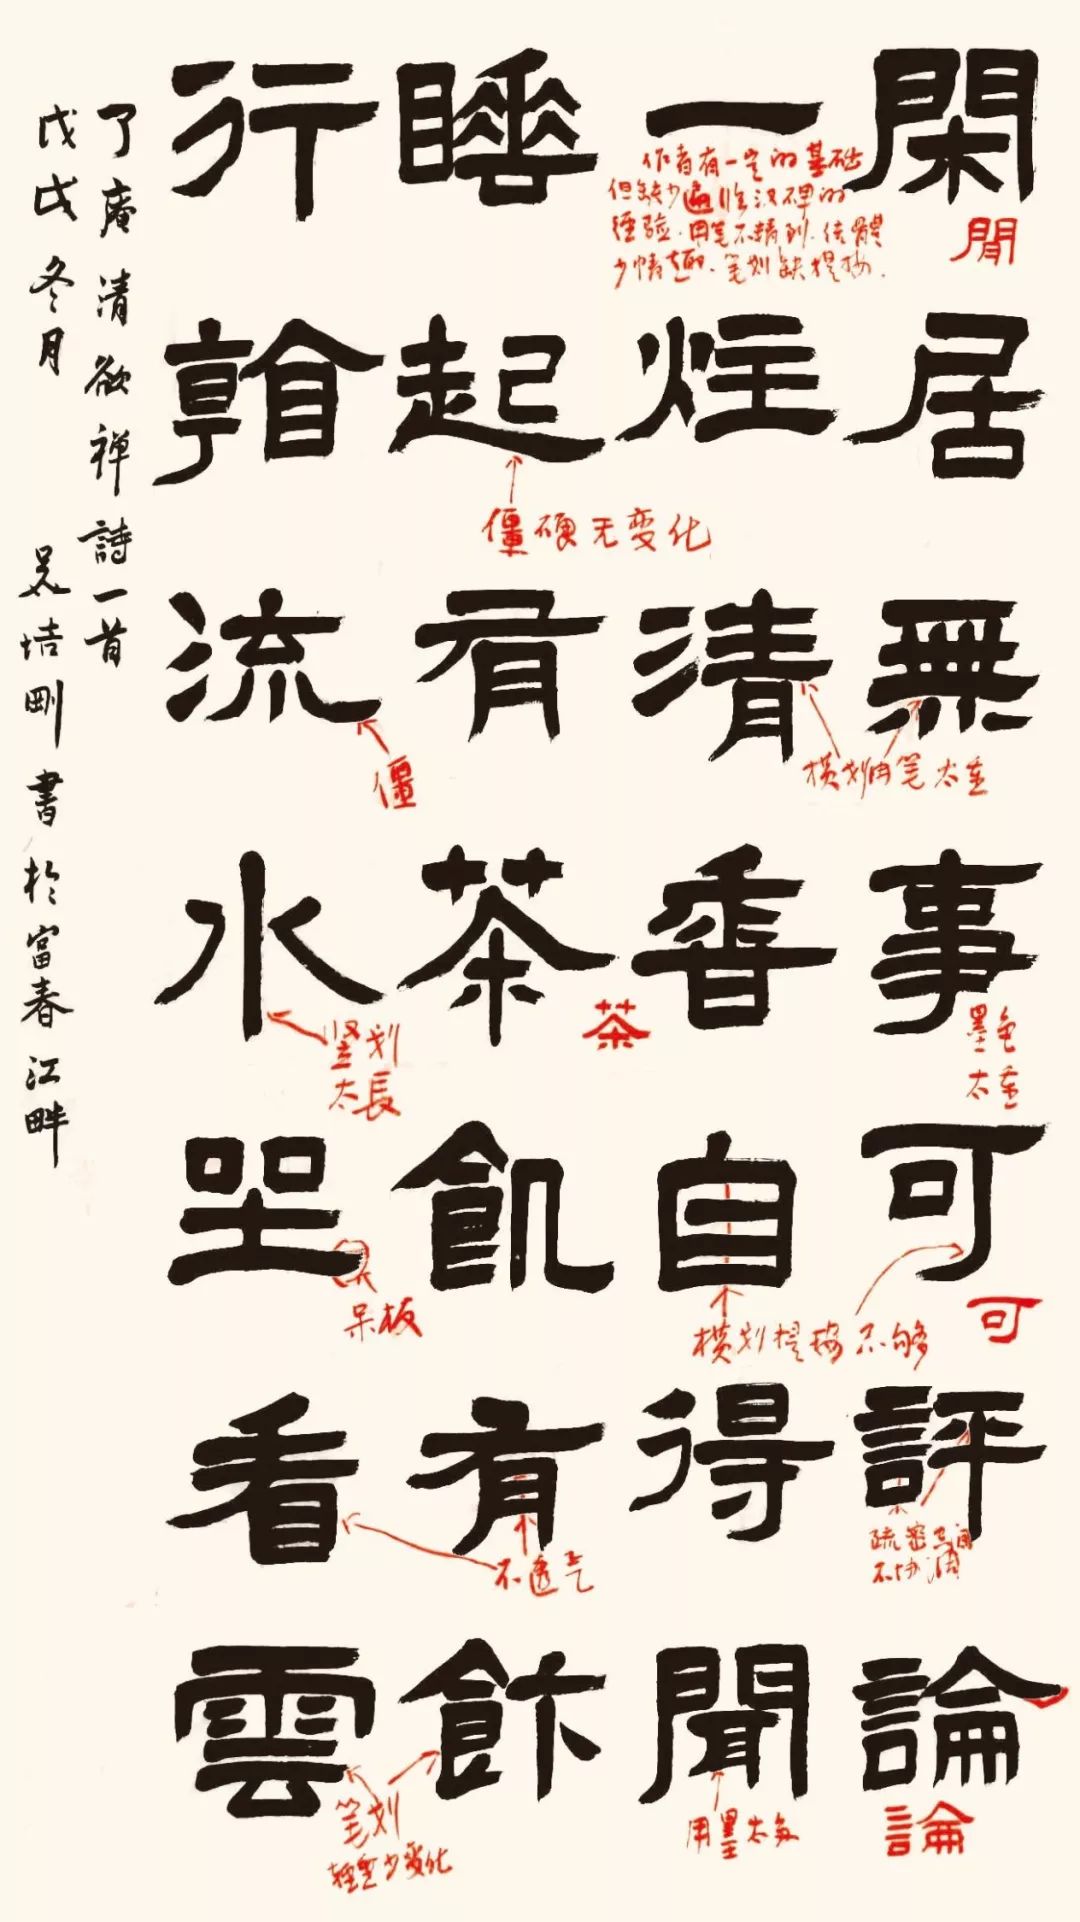 閑居無事可評論
一炷清香自得聞
睡起有茶飢有飰
行流水坐看雲
了庵清欲禅詩一首
戊戌冬月 吴刚書於富春江畔
作者有一定的基础
但缺少遍临汉碑的
经验.用笔不精到.结體
少情趣.笔划缺提按.
閒
僵硬无变化
横划用笔太重
僵
墨色
太重
茶
竖划
太長
可
横划提按不够
呆板
疏密空间
不协调
不透气
論
用墨太多
笔划
轻重少变化